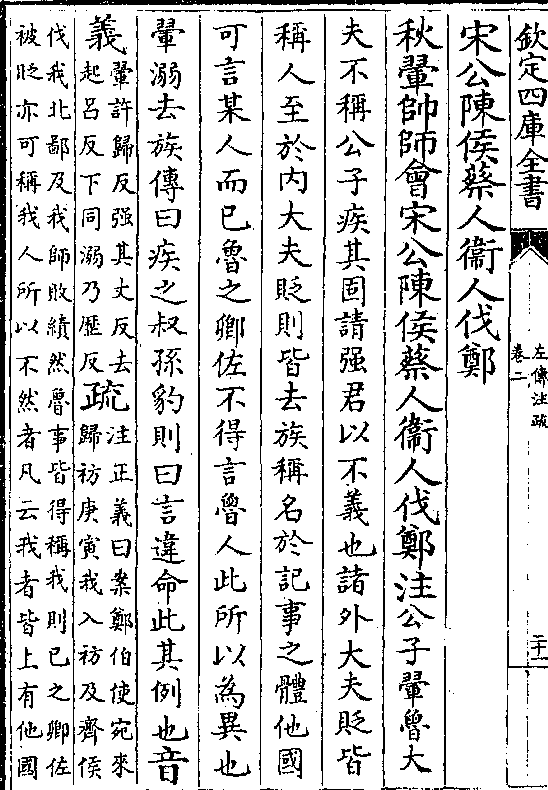 欽定四庫全書
左傳注疏
卷二
二十一
宋公陳侯蔡人衞人伐鄭
秋翬帥師會宋公陳侯蔡人衞人伐鄭注公子翬魯大
夫不稱公子疾其固請强君以不義也諸外大夫貶皆
稱人至於内大夫貶則皆去族稱名於記事之體他國
可言某人而已魯之卿佐不得言魯人此所以為異也
翬溺去族傳曰疾之叔孫豹則曰言違命此其例也音
義翬許歸反强其丈反去
起呂反下同溺乃歴反疏注正義曰案鄭伯使宛來
歸祊庚寅我入祊及齊侯
伐我北鄙及我師敗績然魯事皆得稱我則已之卿佐
被貶亦可稱我人所以不然者凡云我者皆上有他國